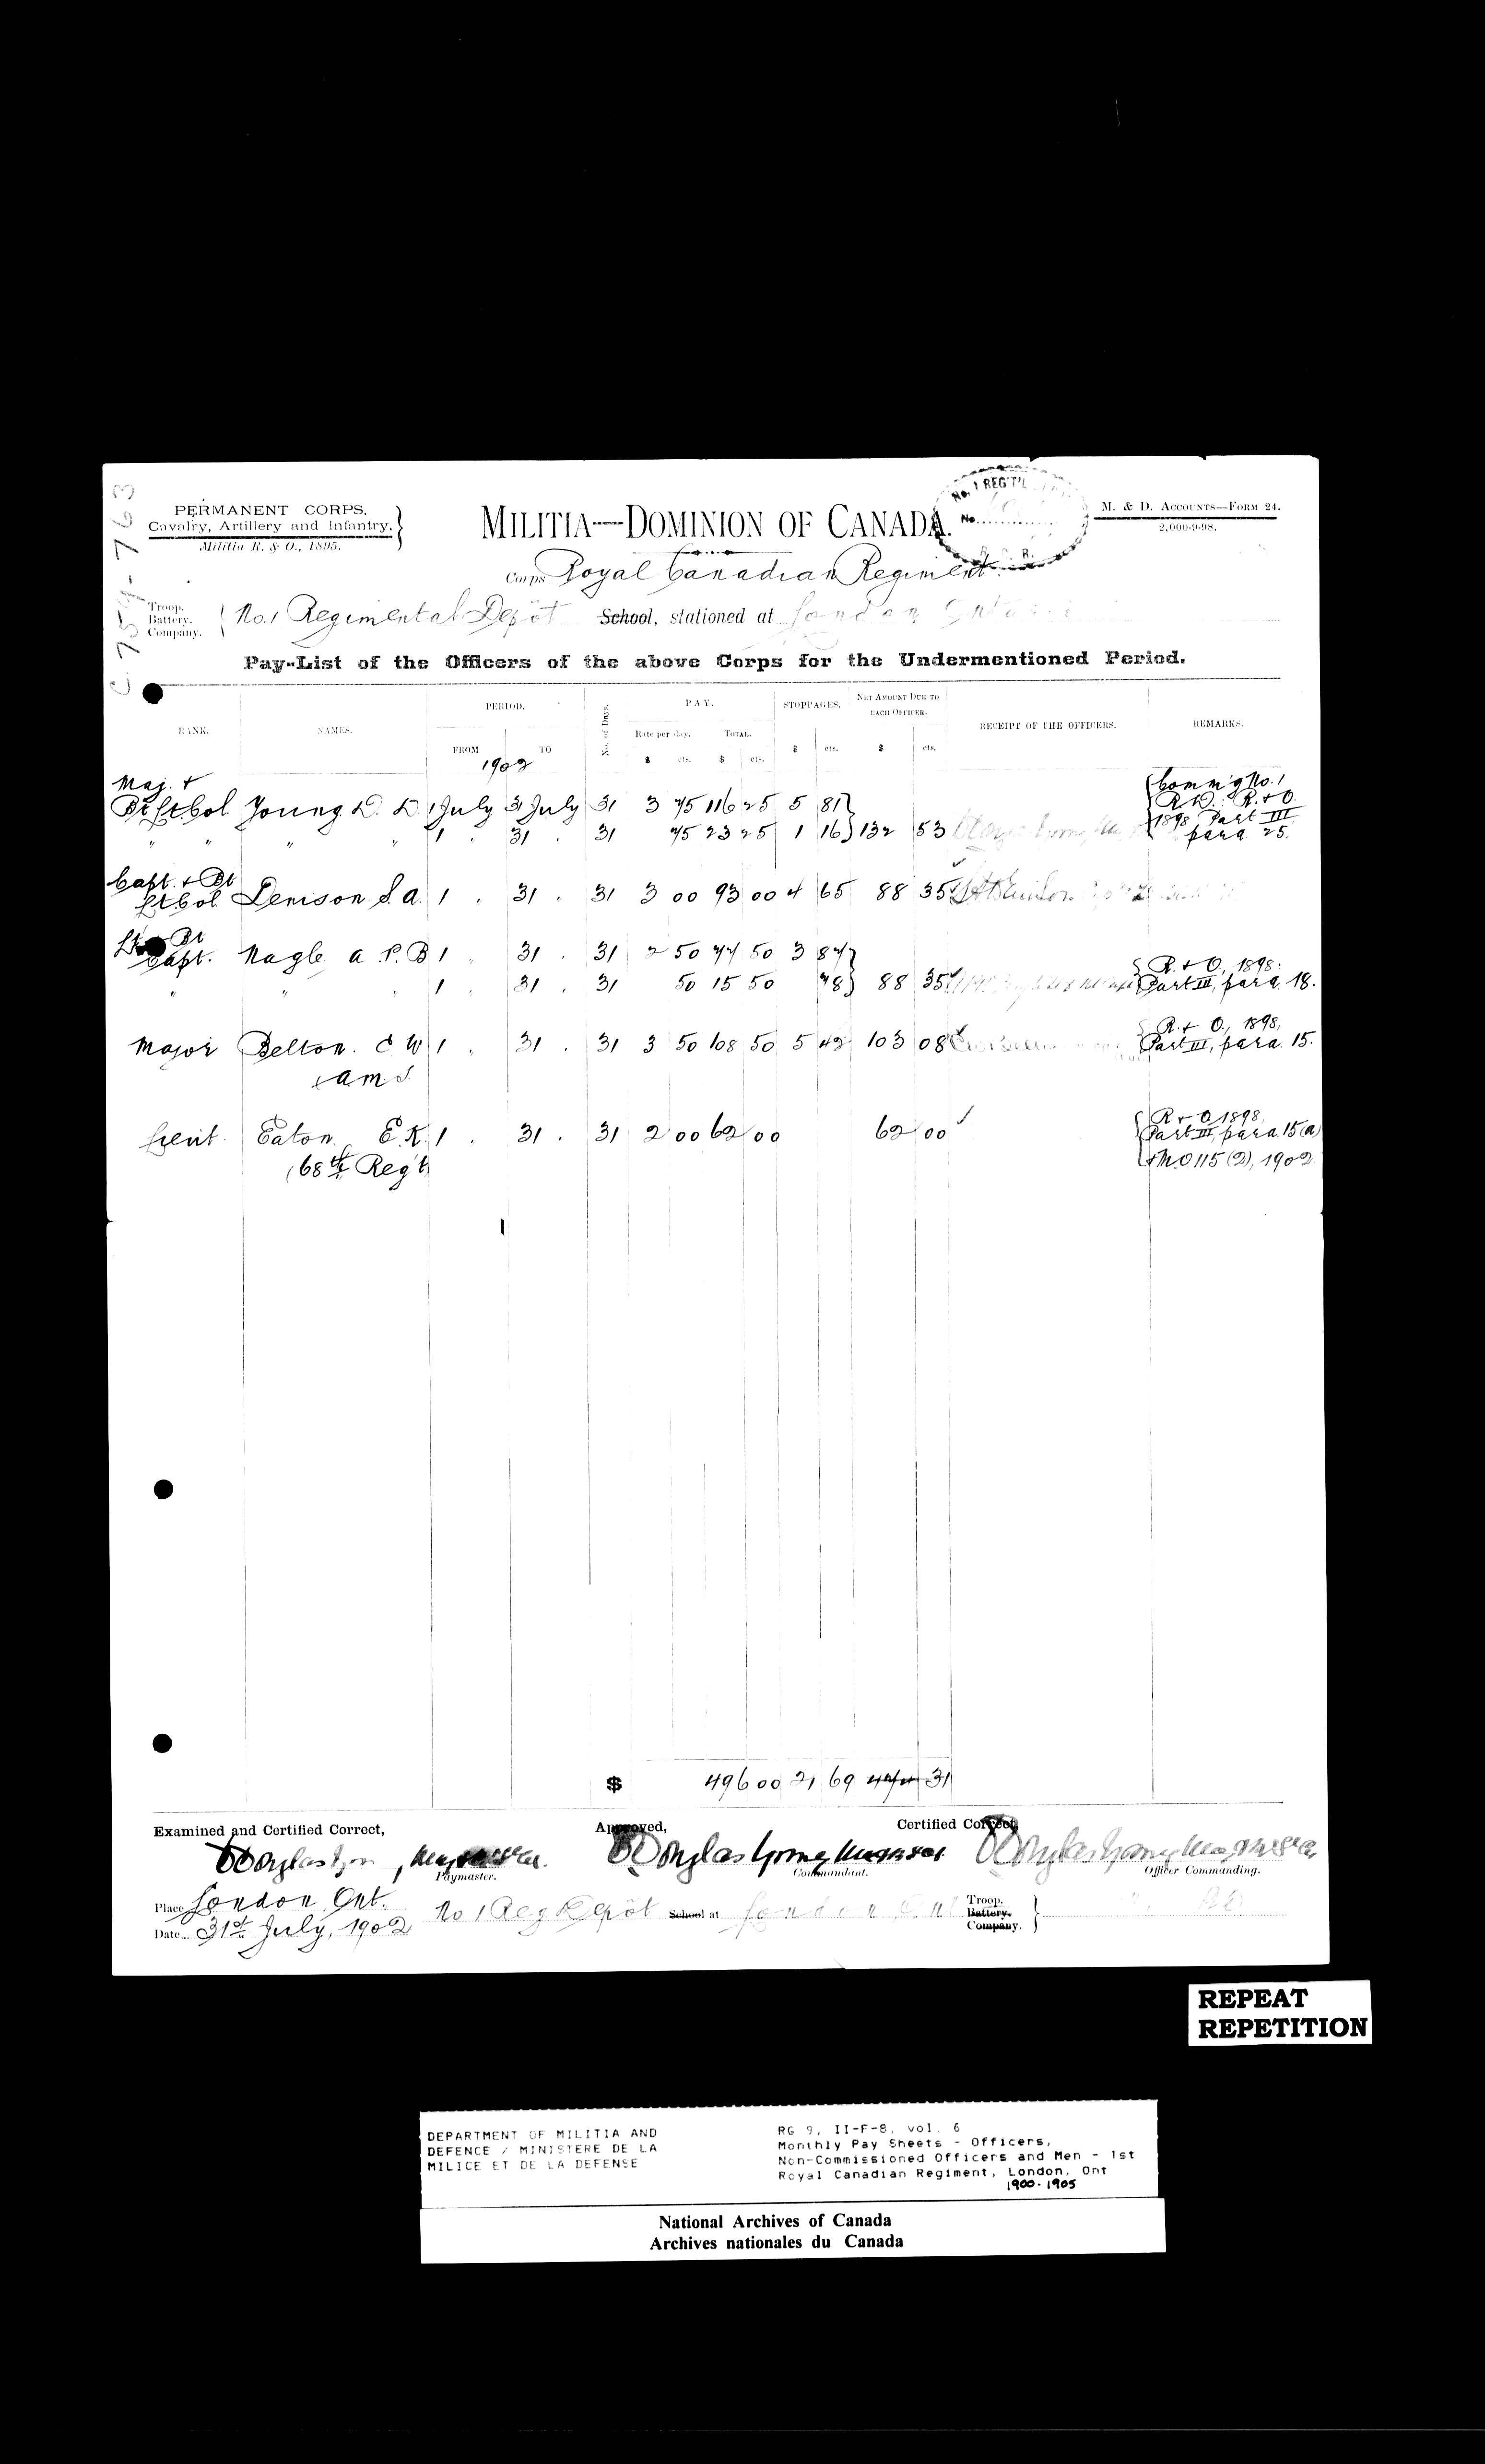 C 7511-763
PERMANENT CORPS.
Cavalry, Artillery and Infantry.
Militia R. & O., 1895.
MILITIA—DOMINION OF CANADA.
No. 1 REG'T'L
No.
R. C. R.
M. & D. ACCOUNTS—FORM 24.
2,000-9-98.
Corps Royal Canadian Regiment
Troop.
Battery.
Company.
No. 1 Regimental Depôt School, stationed at London Ontario
Pay-List of the Officers of the above Corps for the Undermentioned Period.
RANK. NAMES. PERIOD. FROM TO No. of Days. PAY. Rate per day. TOTAL. STOPPAGES. NET AMOUNT DUE TO EACH OFFICER. RECEIPT OF THE OFFICERS. REMARKS.
$ cts. $ cts. $ cts. $ cts.
1902
Maj. + Bt Lt Col Young D. D. 1 July 31 July 31 3 75 116 25 5 81 Comm'g No. 1 R.D. R. + O.
" " " " 1 . 31 . 31 75 23 25 1 16 132 53 1898, Part III para 25.
Capt. + Bt Lt Col Denison S. A. 1 . 31 . 31 3 00 93 00 4 65 88 35
Bt Capt. Nagle A. P. B 1 " 31 . 31 2 50 77 50 3 87
" " " 1 " 31 . 31 50 15 50 78 88 35 R. + O., 1898. Part III, para. 18.
Major Belton. C W 1 . 31 . 31 3 50 108 50 5 42 103 08 R. + O., 1898, Part III, para. 15.
A M S
Lieut. Eaton E. K. 1 . 31 . 31 2 00 62 00 62 00 R + O 1898, Part III, para. 15(a)
68th Reg't + M.O 115 (2), 1902
$ 496 00 21 69 474 31
Examined and Certified Correct,
Approved,
Certified Correct,
D Douglas Young
Paymaster.
D Douglas Young
Commandant.
D Douglas Young
Officer Commanding.
Place London, Ont.
Date 31st July, 1902
No 1 Reg Depôt School at London Ont
Troop.
Battery.
Company.
REPEAT
REPETITION
DEPARTMENT OF MILITIA AND
DEFENCE / MINISTERE DE LA
MILICE ET DE LA DEFENSE
RG 9, II-F-8, vol. 6
Monthly Pay Sheets - Officers,
Non-Commissioned Officers and Men - 1st
Royal Canadian Regiment, London, Ont
1900-1905
National Archives of Canada
Archives nationales du Canada